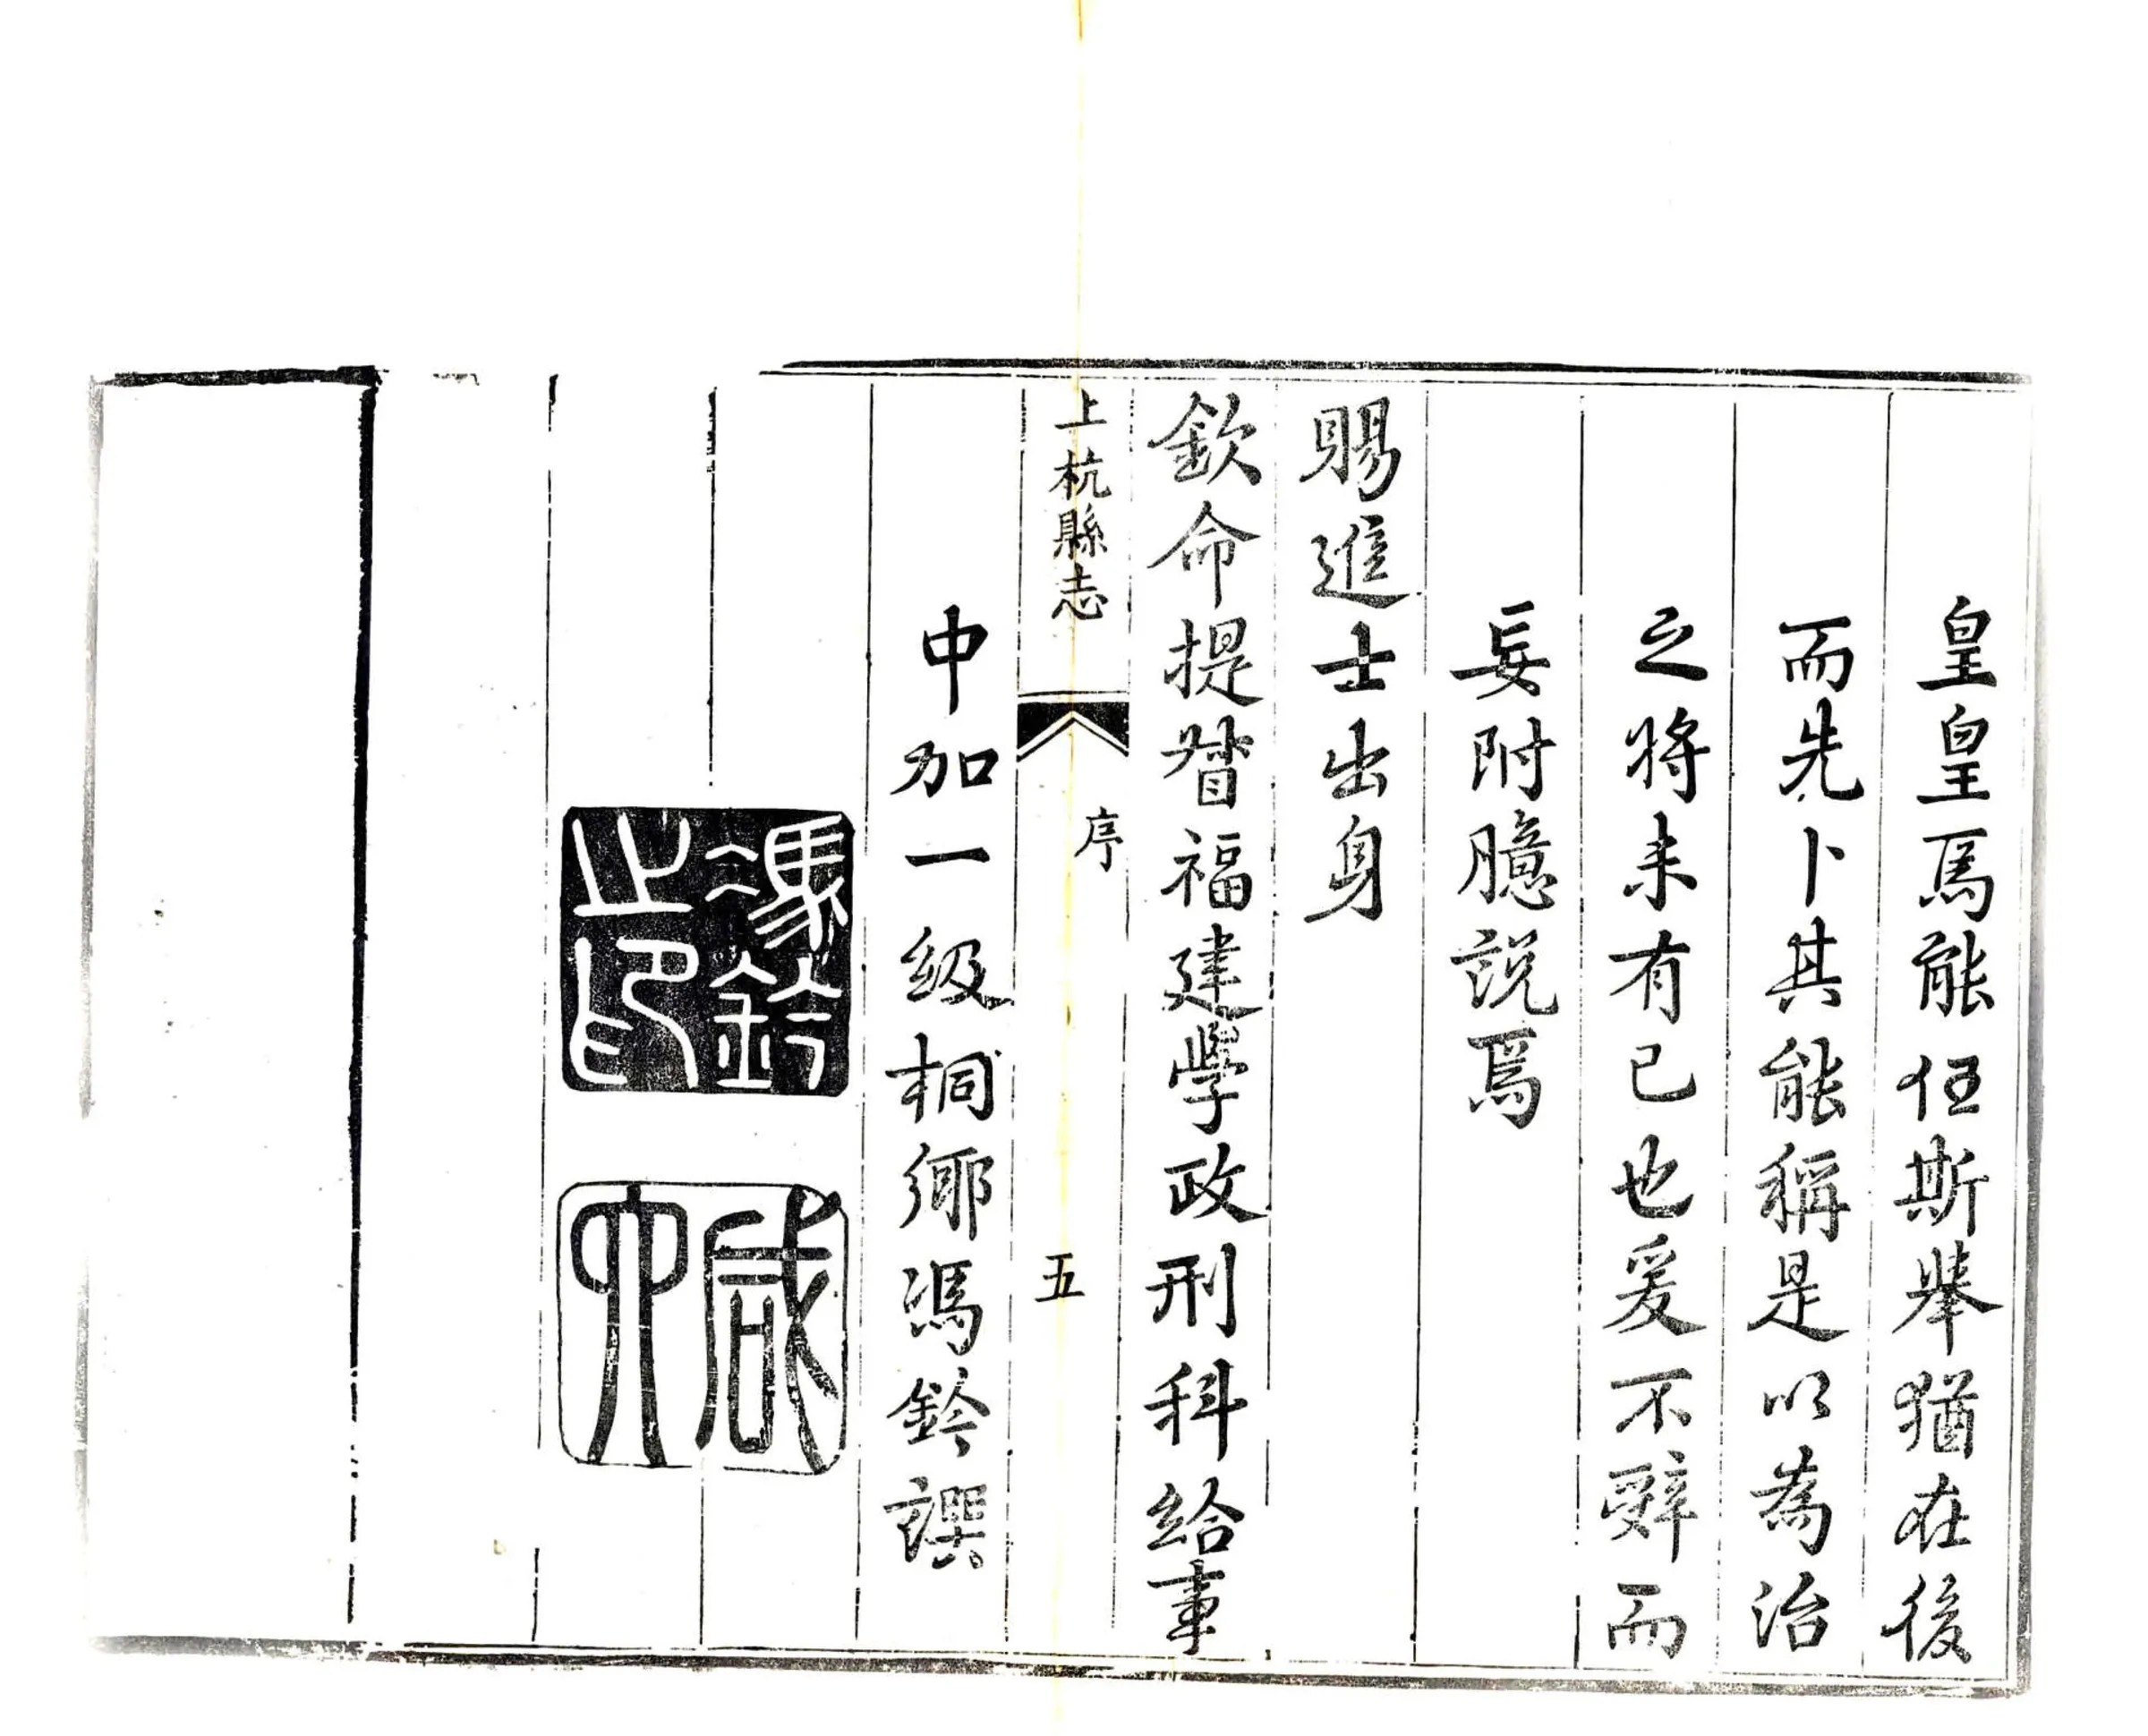 皇皇焉能任斯舉猶在後
而先卜其能稱是以為治
之將未有已也爰不辭而
妄附臆說焉
賜進士出身
欽命提督福建學政刑科給事
上杭縣志
序
五
中加一級桐鄉馮鈐譔
馮鈐之印
咸六